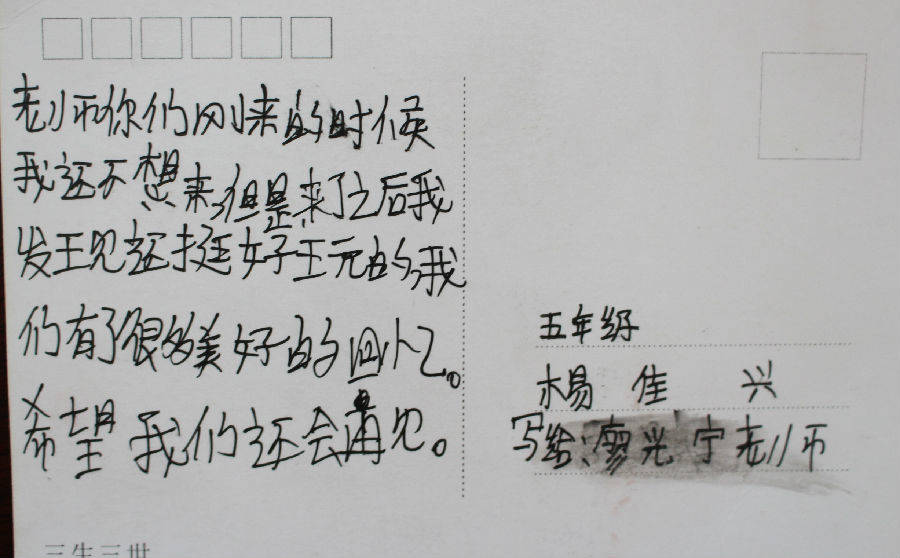 老师你们刚来的时候
我还不想来,但是来了之后我
发现还挺好玩的,我
们有了很多美好的回忆。
希望我们还会再见。
五年级
杨佳兴
写给:廖兴宁老师
三生三世